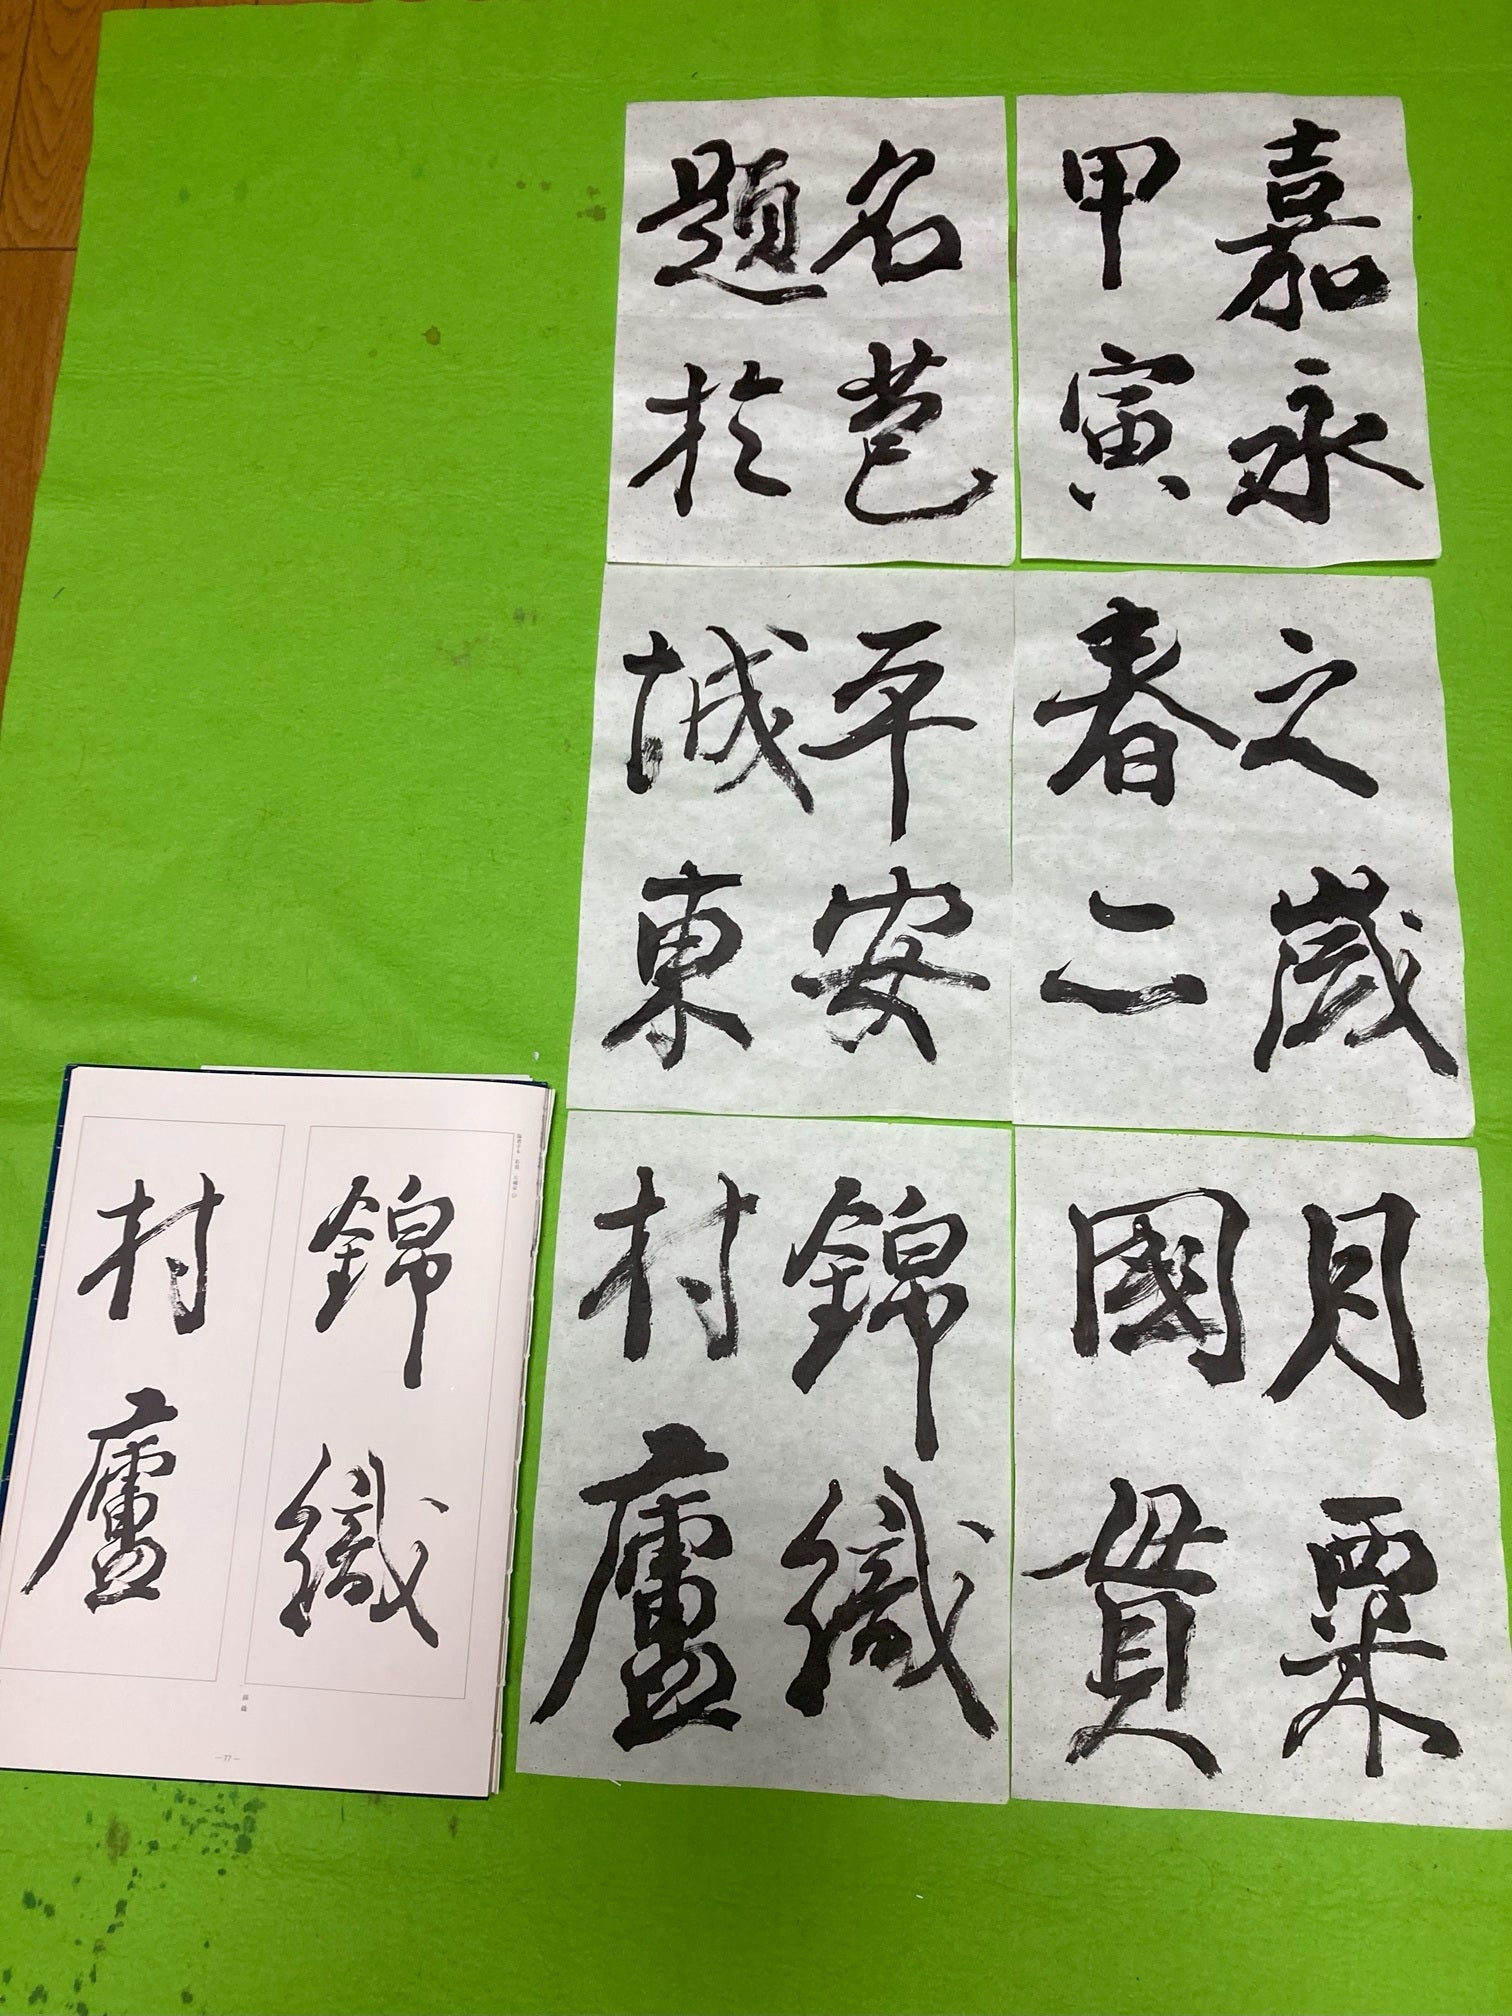 嘉永
甲寅
之歳
春二
月粟
國貫
名苞
題於
平安
城東
錦織
村廬
錦織
村廬
錦織
— 77 —